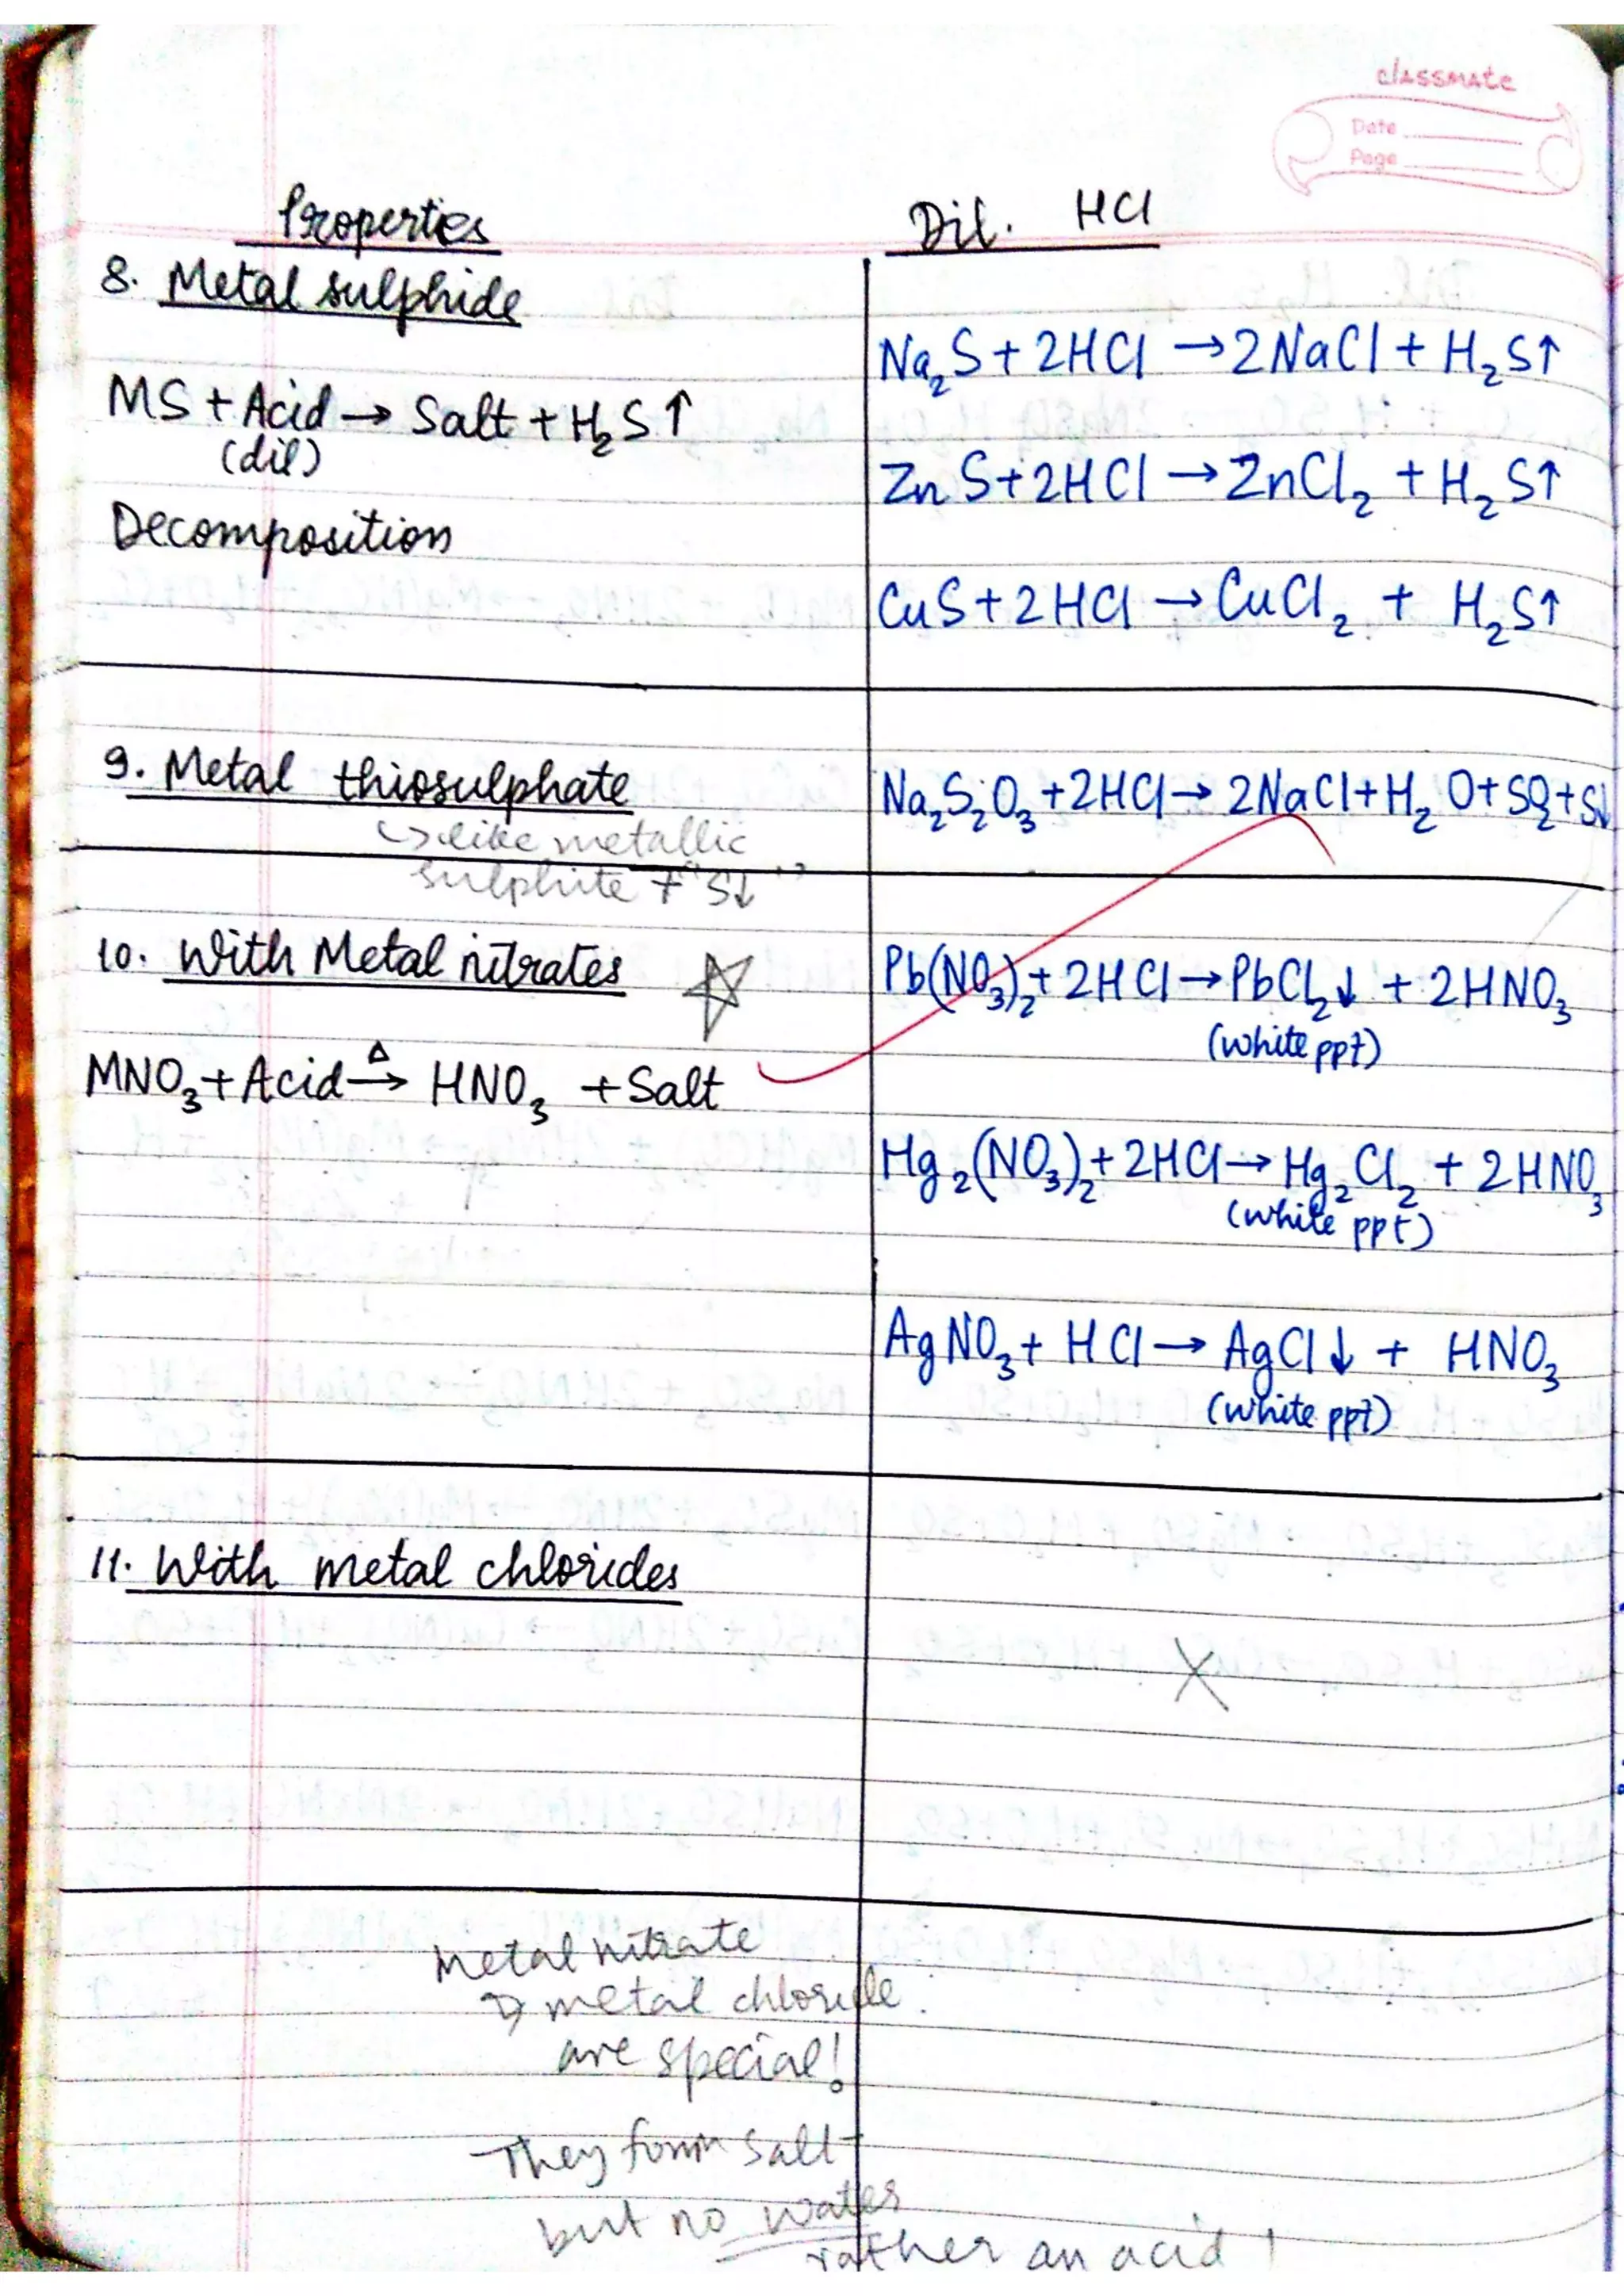 classmate
Date
Page
Properties
Dil. HCl
8. Metal sulphide
MS + Acid → Salt + H₂S↑
(dil)
Decomposition
Na₂S + 2HCl → 2NaCl + H₂S↑
ZnS + 2HCl → ZnCl₂ + H₂S↑
CuS + 2HCl → CuCl₂ + H₂S↑
9. Metal thiosulphate
↪ like metallic
sulphite + "S↓"
Na₂S₂O₃ + 2HCl → 2NaCl + H₂O + SO₂ + S↓
10. With Metal nitrates
MNO₃ + Acid →(Δ) HNO₃ + Salt
Pb(NO₃)₂ + 2HCl → PbCl₂↓ + 2HNO₃
(white ppt)
Hg₂(NO₃)₂ + 2HCl → Hg₂Cl₂ + 2HNO₃
(white ppt)
AgNO₃ + HCl → AgCl↓ + HNO₃
(white ppt)
11. With metal chlorides
X
Metal nitrate
metal chloride.
are special!
They form salt
but no water
rather an acid!